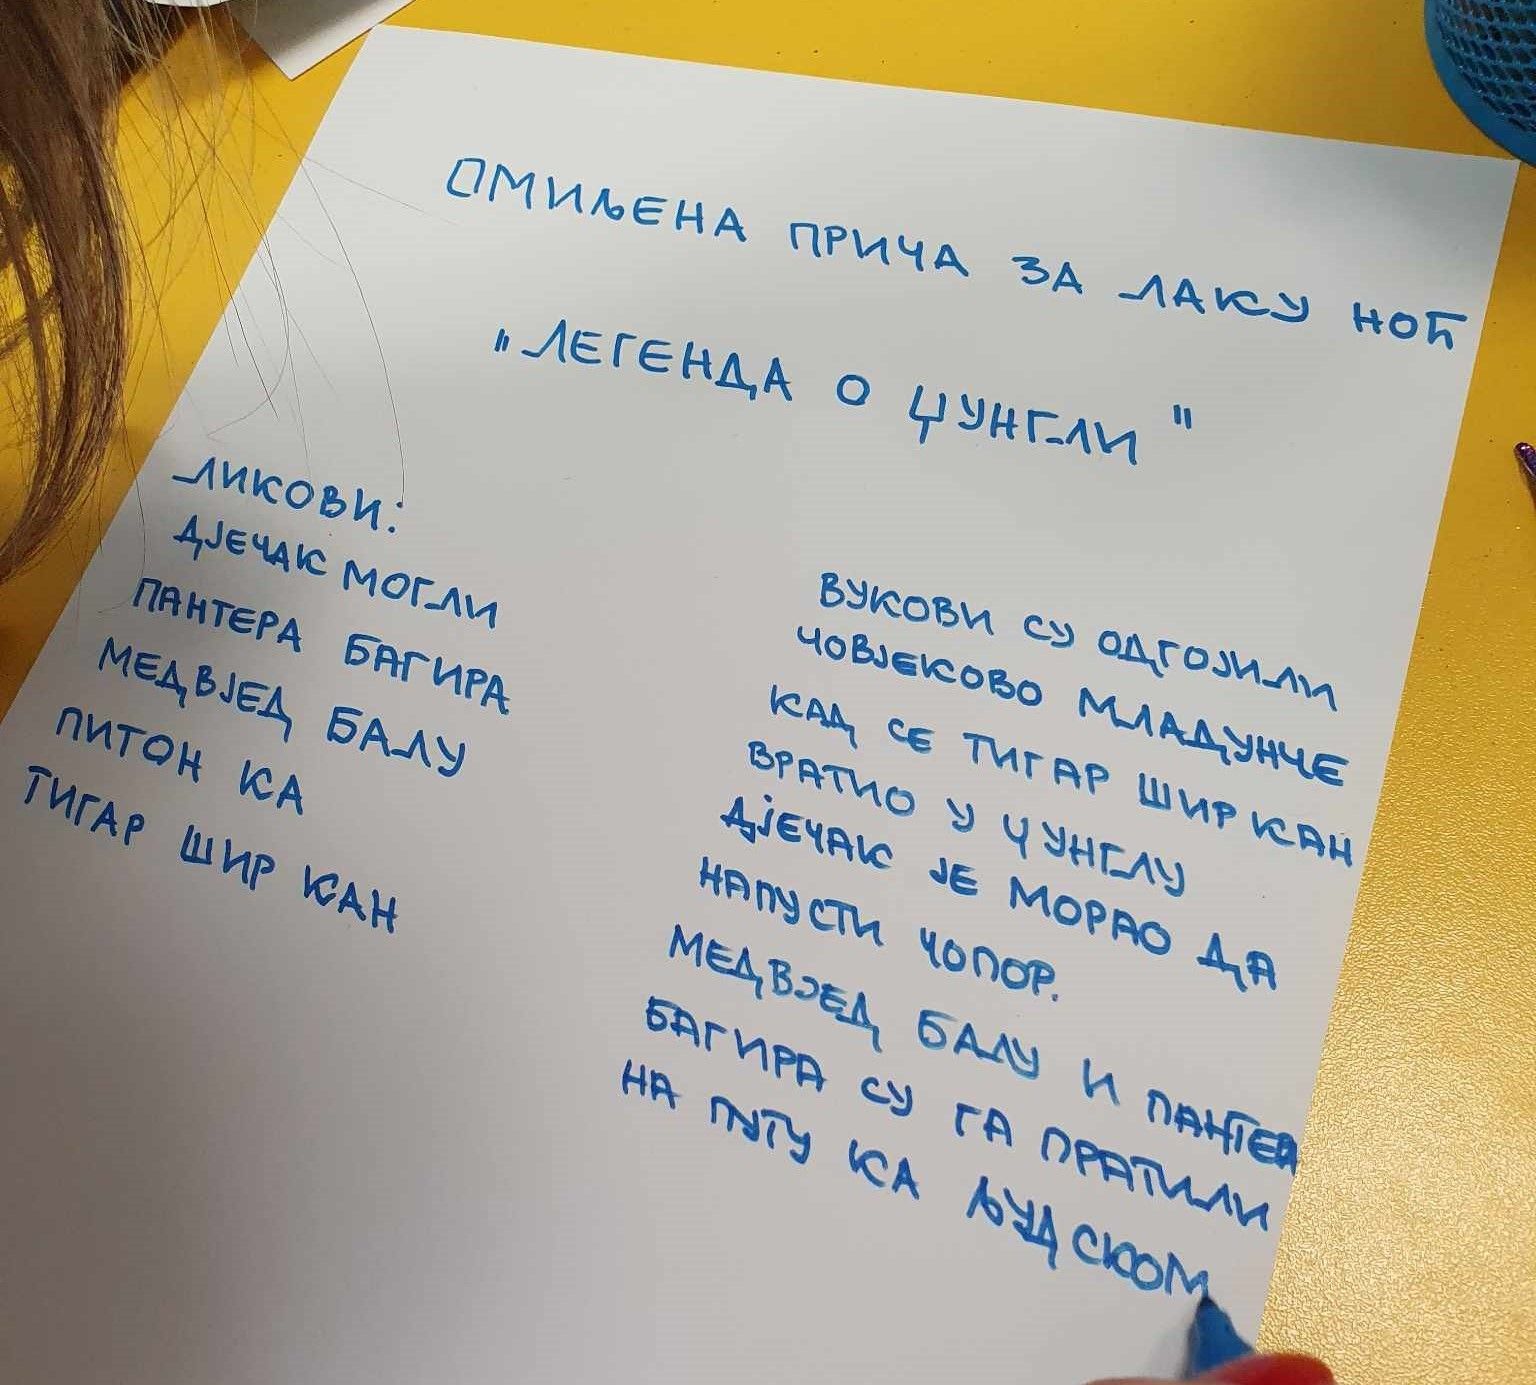 ОМИЉЕНА ПРИЧА ЗА ЛАКУ НОЋ
"ЛЕГЕНДА О ЏУНГЛИ"
ЛИКОВИ:
ДЈЕЧАК МОГЛИ
ПАНТЕРА БАГИРА
МЕДВЈЕД БАЛУ
ПИТОН КА
ТИГАР ШИР КАН
ВУКОВИ СУ ОДГОЈИЛИ
ЧОВЈЕКОВО МЛАДУНЧЕ
КАД СЕ ТИГАР ШИР КАН
ВРАТИО У ЏУНГЛУ
ДЈЕЧАК ЈЕ МОРАО ДА
НАПУСТИ ЧОПОР.
МЕДВЈЕД БАЛУ И ПАНТЕРА
БАГИРА СУ ГА ПРАТИЛИ
НА ПУТУ КА ЉУДСКОМ